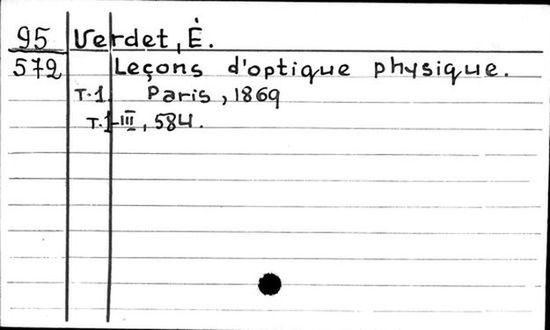 95 Verdet, É.
572 Leçons d'optique physique.
T.1 Paris, 1869
T.1-III, 584.